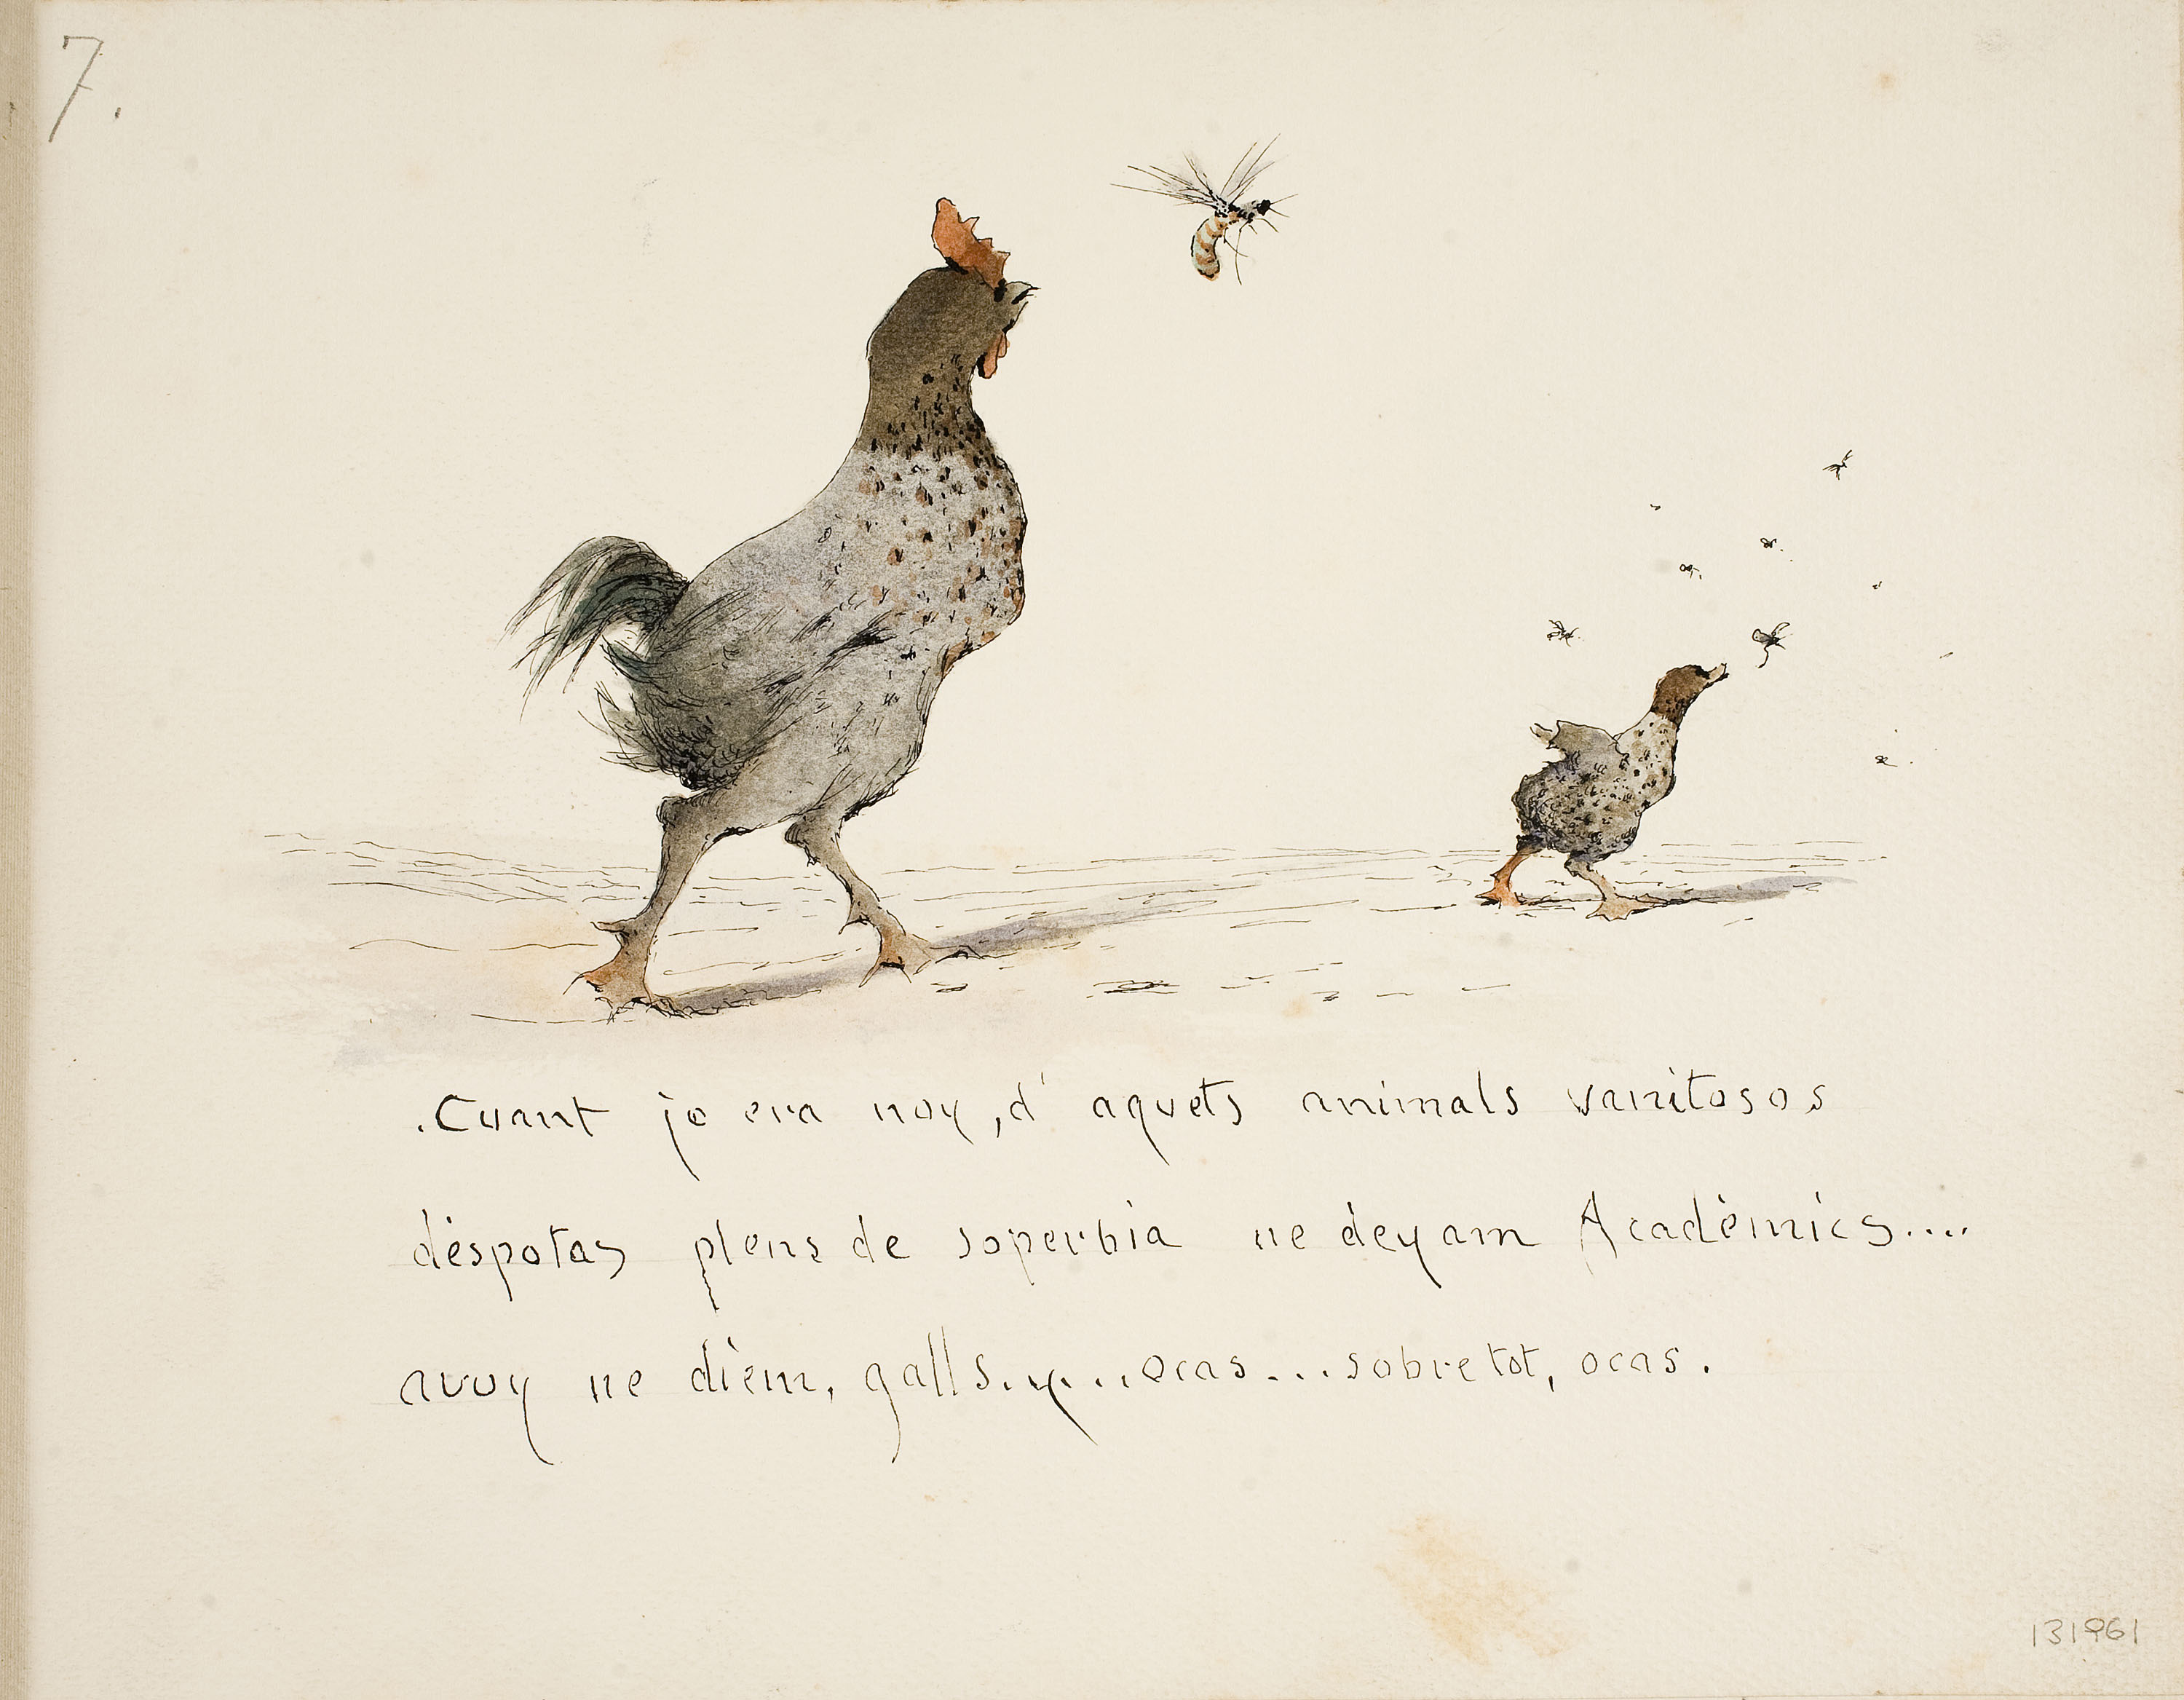 7.
.Cuant jo era noy, d' aquets animals vanitosos
déspotas plens de soperbia ne dèyam Acadèmics....
avuy ne dièm, galls..y...ocas...sobre tot, ocas.
131961